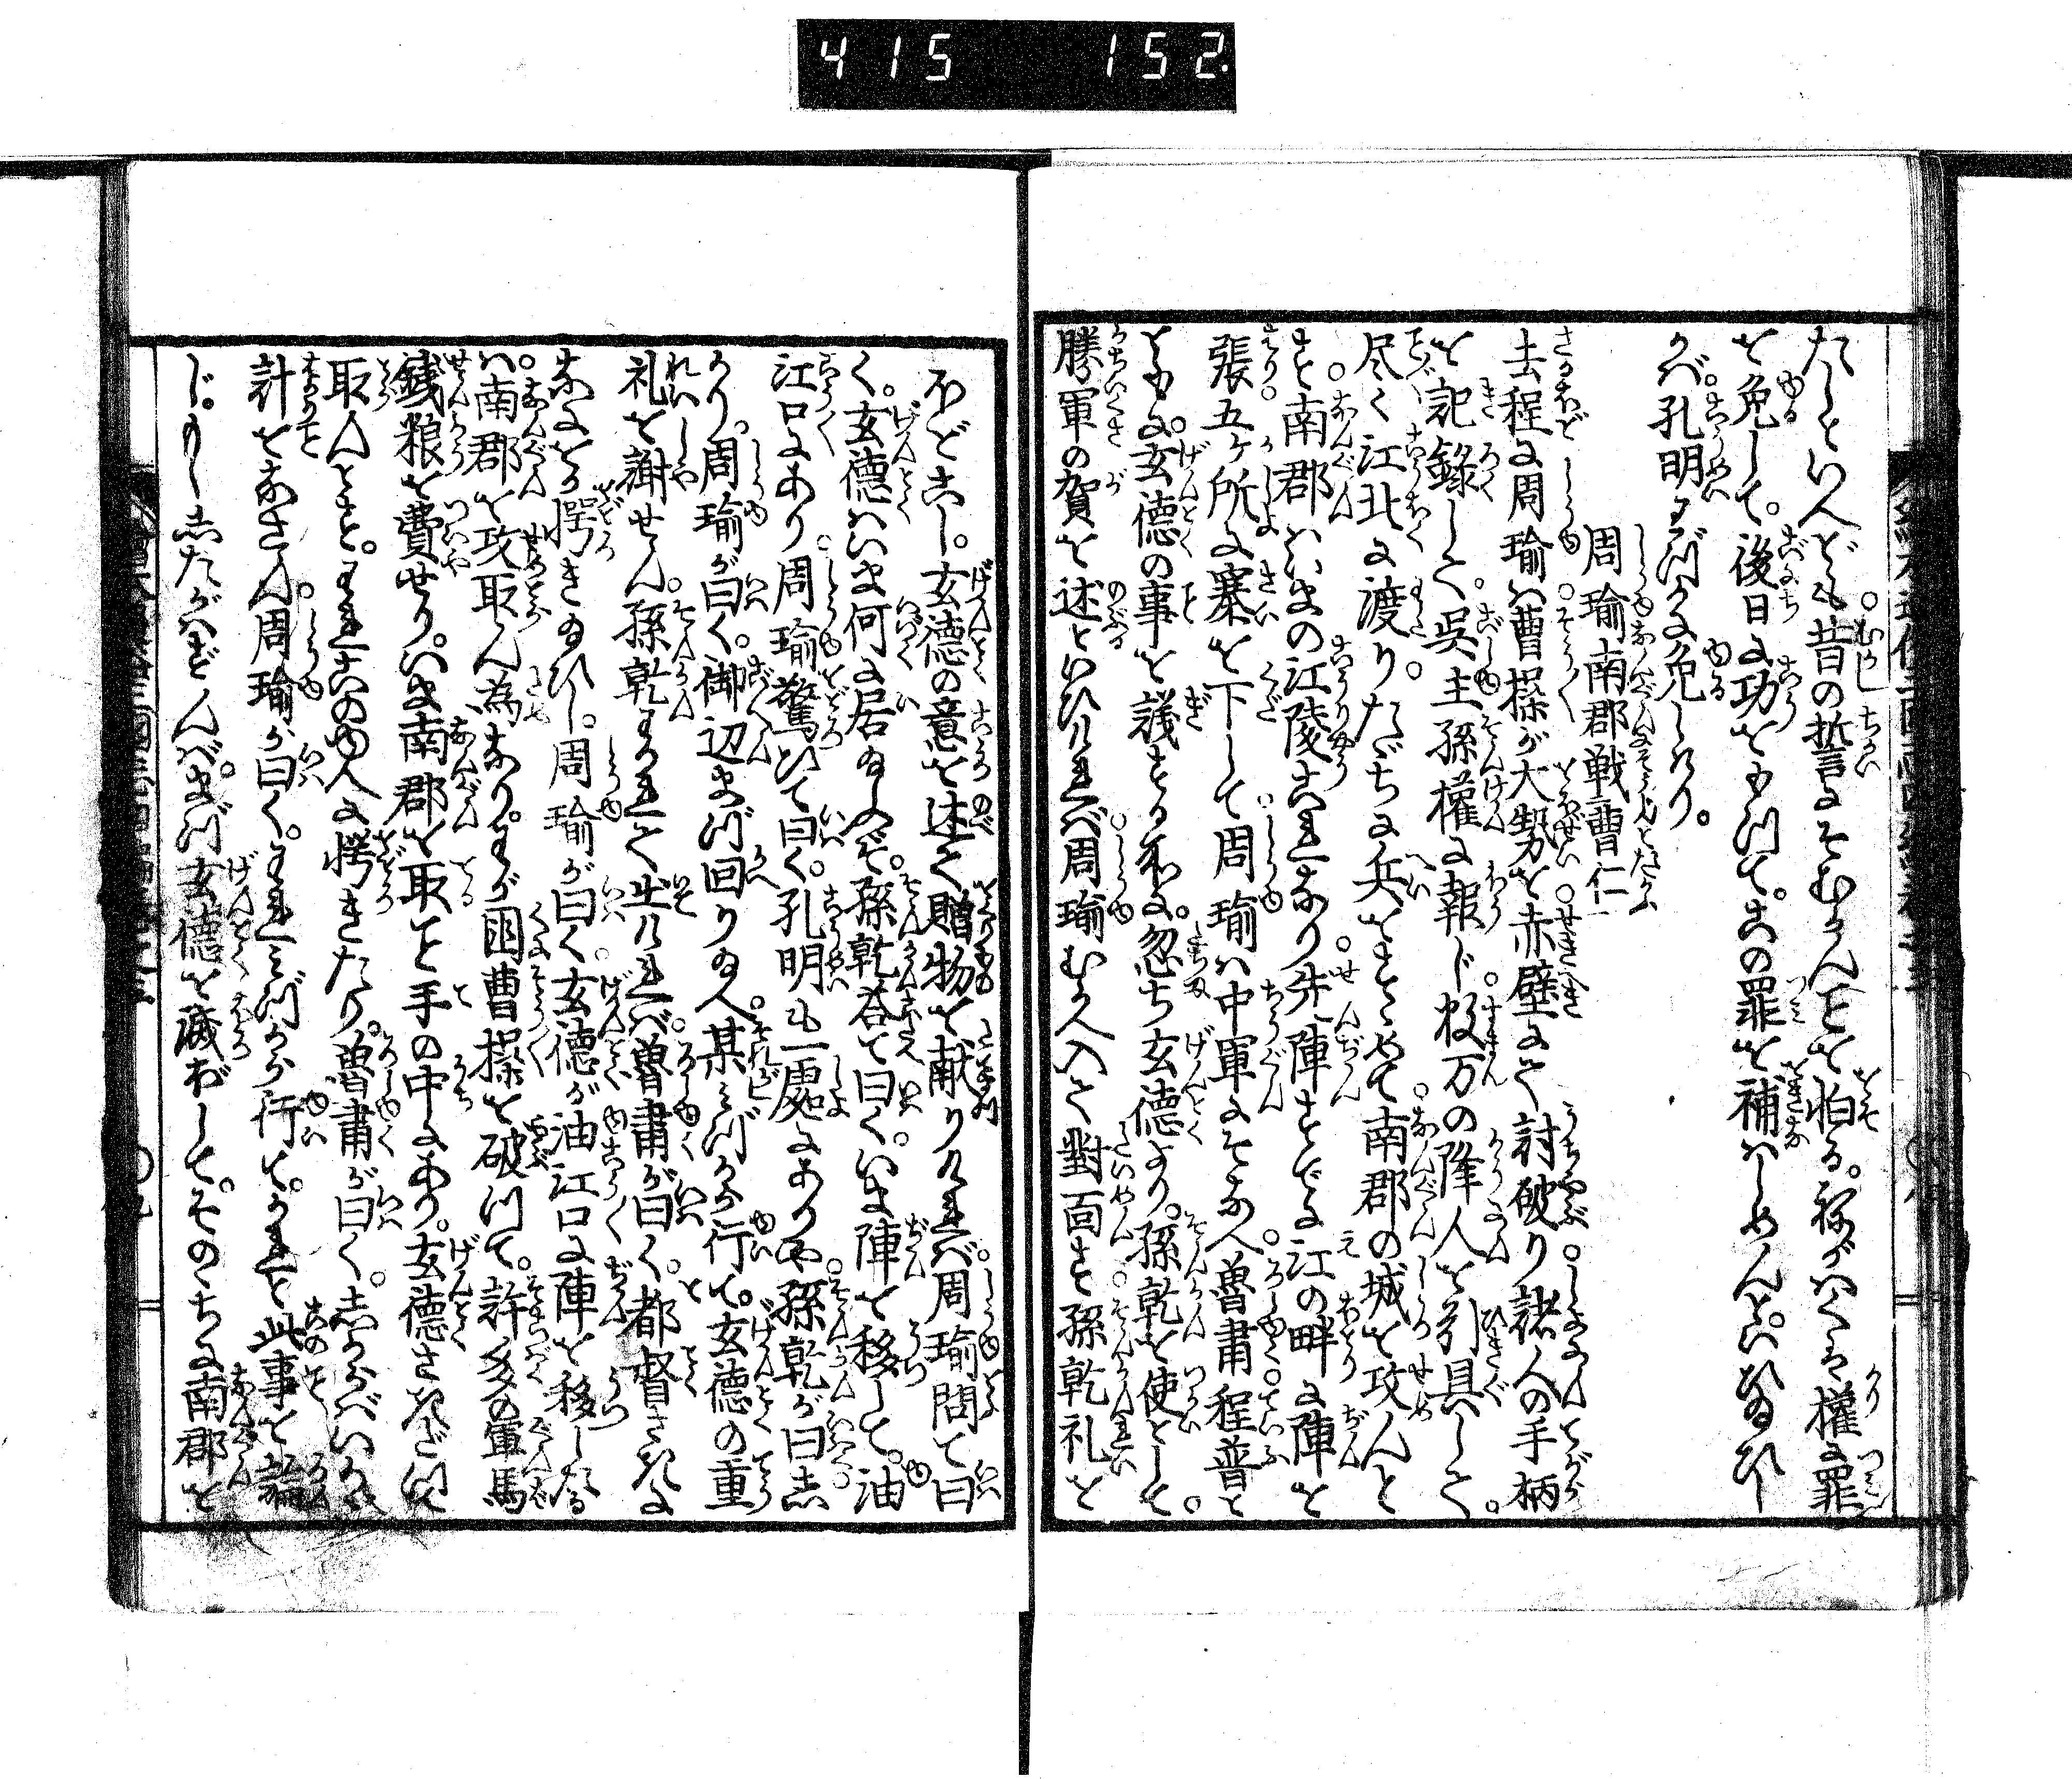 415 152
たしといへども昔の誓にそむかんことを怕る。ねがはくは權に罪
を免して。後日に功をもつて。この罪を補はしめんといひ給ひし
かば。孔明わづかに免しけり。
周瑜南郡戦曹仁
去程に周瑜ハ曹操が大勢を赤壁にて討破り諸人の手柄
を記録して。呉主孫權に報じ數万の降人を引具して。
尽く江北に渡り。たゞちに兵をすゝめて南郡の城を攻んと
す南郡ハいまの江陵これなり先陣すでに江の畔に陣を
張五ケ所に寨を下して周瑜ハ中軍にそなへ魯肅程普と
ともに。玄德の事を議する所に。忽ち玄德より。孫乾を使として。
勝軍の賀を述といひければ周瑜むかへ入て對面す孫乾礼を
ほどこし。玄德の意を述て贈物を献りければ。周瑜問て曰
く。玄德ハいま何に居給ふぞ。孫乾荅て曰く。いま陣を移して。油
江口にあり周瑜驚ひて曰く。孔明も一處にありや孫乾が曰しか
り。周瑜が曰く。御辺まづ回り給へ某みづから行て。玄德の重
礼を謝せん孫乾わかれて出ければ。魯肅が曰く。都督さきに
なにとて愕き給ひし。周瑜が曰く玄德が油江口に陣を移したる
ハ。南郡を攻取ん為なり。わが國曹操を破つて。許多の軍馬
錢粮を費せり。いま南郡を取こと手の中にあり。玄德さきだつて
取んとす。われこのゆへに愕きたり。魯肅が曰く。しからバいかなる
計をなさん周瑜が曰く。われみづから行て。かれと此事を論
じ。もししたがはずんバ。まづ玄德を滅ぼして。そのちに南郡を